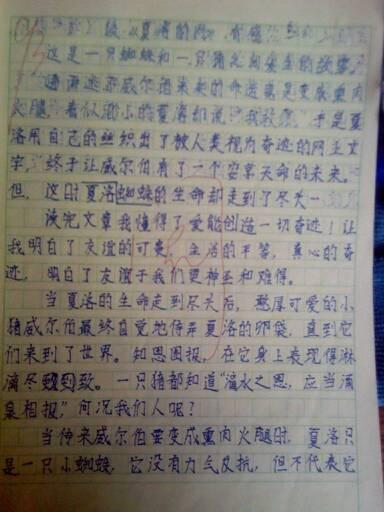 读《夏洛的网》有感
这是一只蜘蛛和一只猪之间发生的故事。
一语而逃亦威尔伯未来的命运竟是变成熏肉
火腿，看似渺小的夏洛却说："我救你"于是夏
洛用自己的丝织出了被人类视为奇迹的网上文
字，终于让威尔伯有了一个安享天命的未来。
但，这时夏洛蜘蛛的生命却走到了尽头…
读完文章我懂得了爱能创造一切奇迹！让
我明白了友谊的可贵，生活的平等，真心的奇
迹，明白了友谊于我们更神圣和难得。
当夏洛的生命走到尽头后，憨厚可爱的小
猪威尔伯最终自觉地侍弄夏洛的卵袋，直到它
们来到了世界。知恩图报，在它身上表现得淋
漓尽致。一只猪都知道"滴水之恩，应当涌
泉相报，"何况我们人呢？
当传来威尔伯要变成熏肉火腿时，夏洛只
是一只小蜘蛛，它没有力气反抗，但不代表它